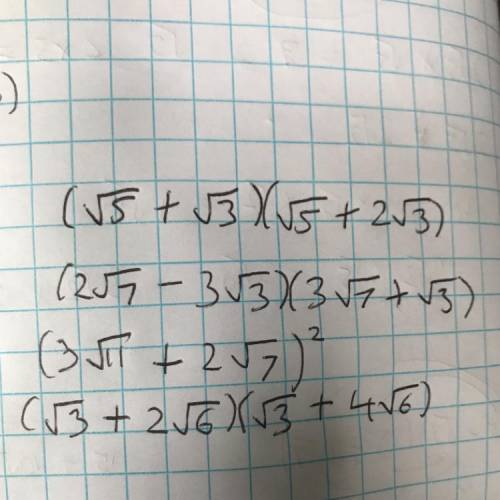 )
(√5 + √3)(√5 + 2√3)
(2√7 − 3√3)(3√7 + √3)
(3√11 + 2√7)²
(√3 + 2√6)(√3 + 4√6)